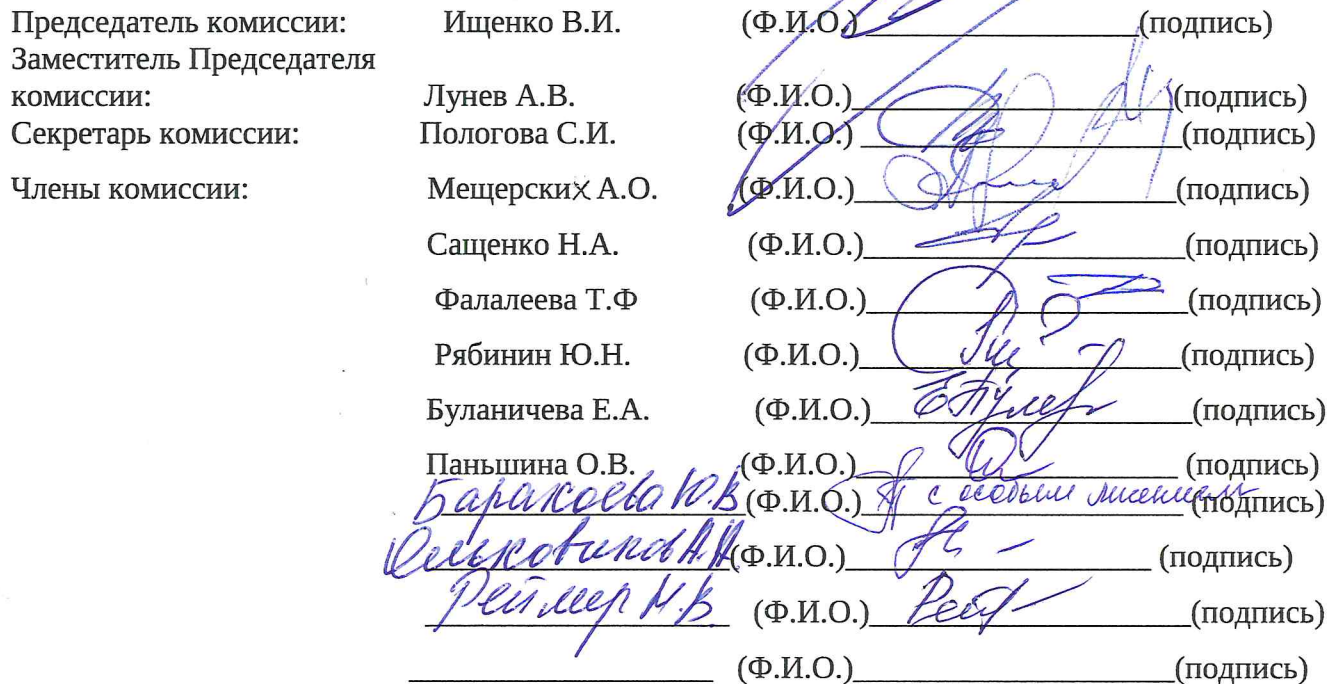 Председатель комиссии: Ищенко В.И. (Ф.И.О.)__________________(подпись)
Заместитель Председателя
комиссии: Лунев А.В. (Ф.И.О.)____________________(подпись)
Секретарь комиссии: Пологова С.И. (Ф.И.О.) ____________________(подпись)
Члены комиссии: Мещерских А.О. (Ф.И.О.)____________________(подпись)
Сащенко Н.А. (Ф.И.О.)____________________(подпись)
Фалалеева Т.Ф (Ф.И.О.)____________________(подпись)
Рябинин Ю.Н. (Ф.И.О.)____________________(подпись)
Буланичева Е.А. (Ф.И.О.)____________________(подпись)
Паньшина О.В. (Ф.И.О.)____________________(подпись)
Баракоева Ю.В (Ф.И.О.) с особым мнением (подпись)
(Ф.И.О.)___________________ (подпись)
Реймер Н.В. (Ф.И.О.)____________________(подпись)
___________________ (Ф.И.О.)____________________(подпись)